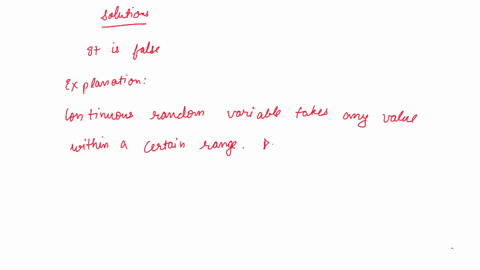 Solutions
It is false
Explanation:
Continuous random variable takes any value
within a certain range. D.